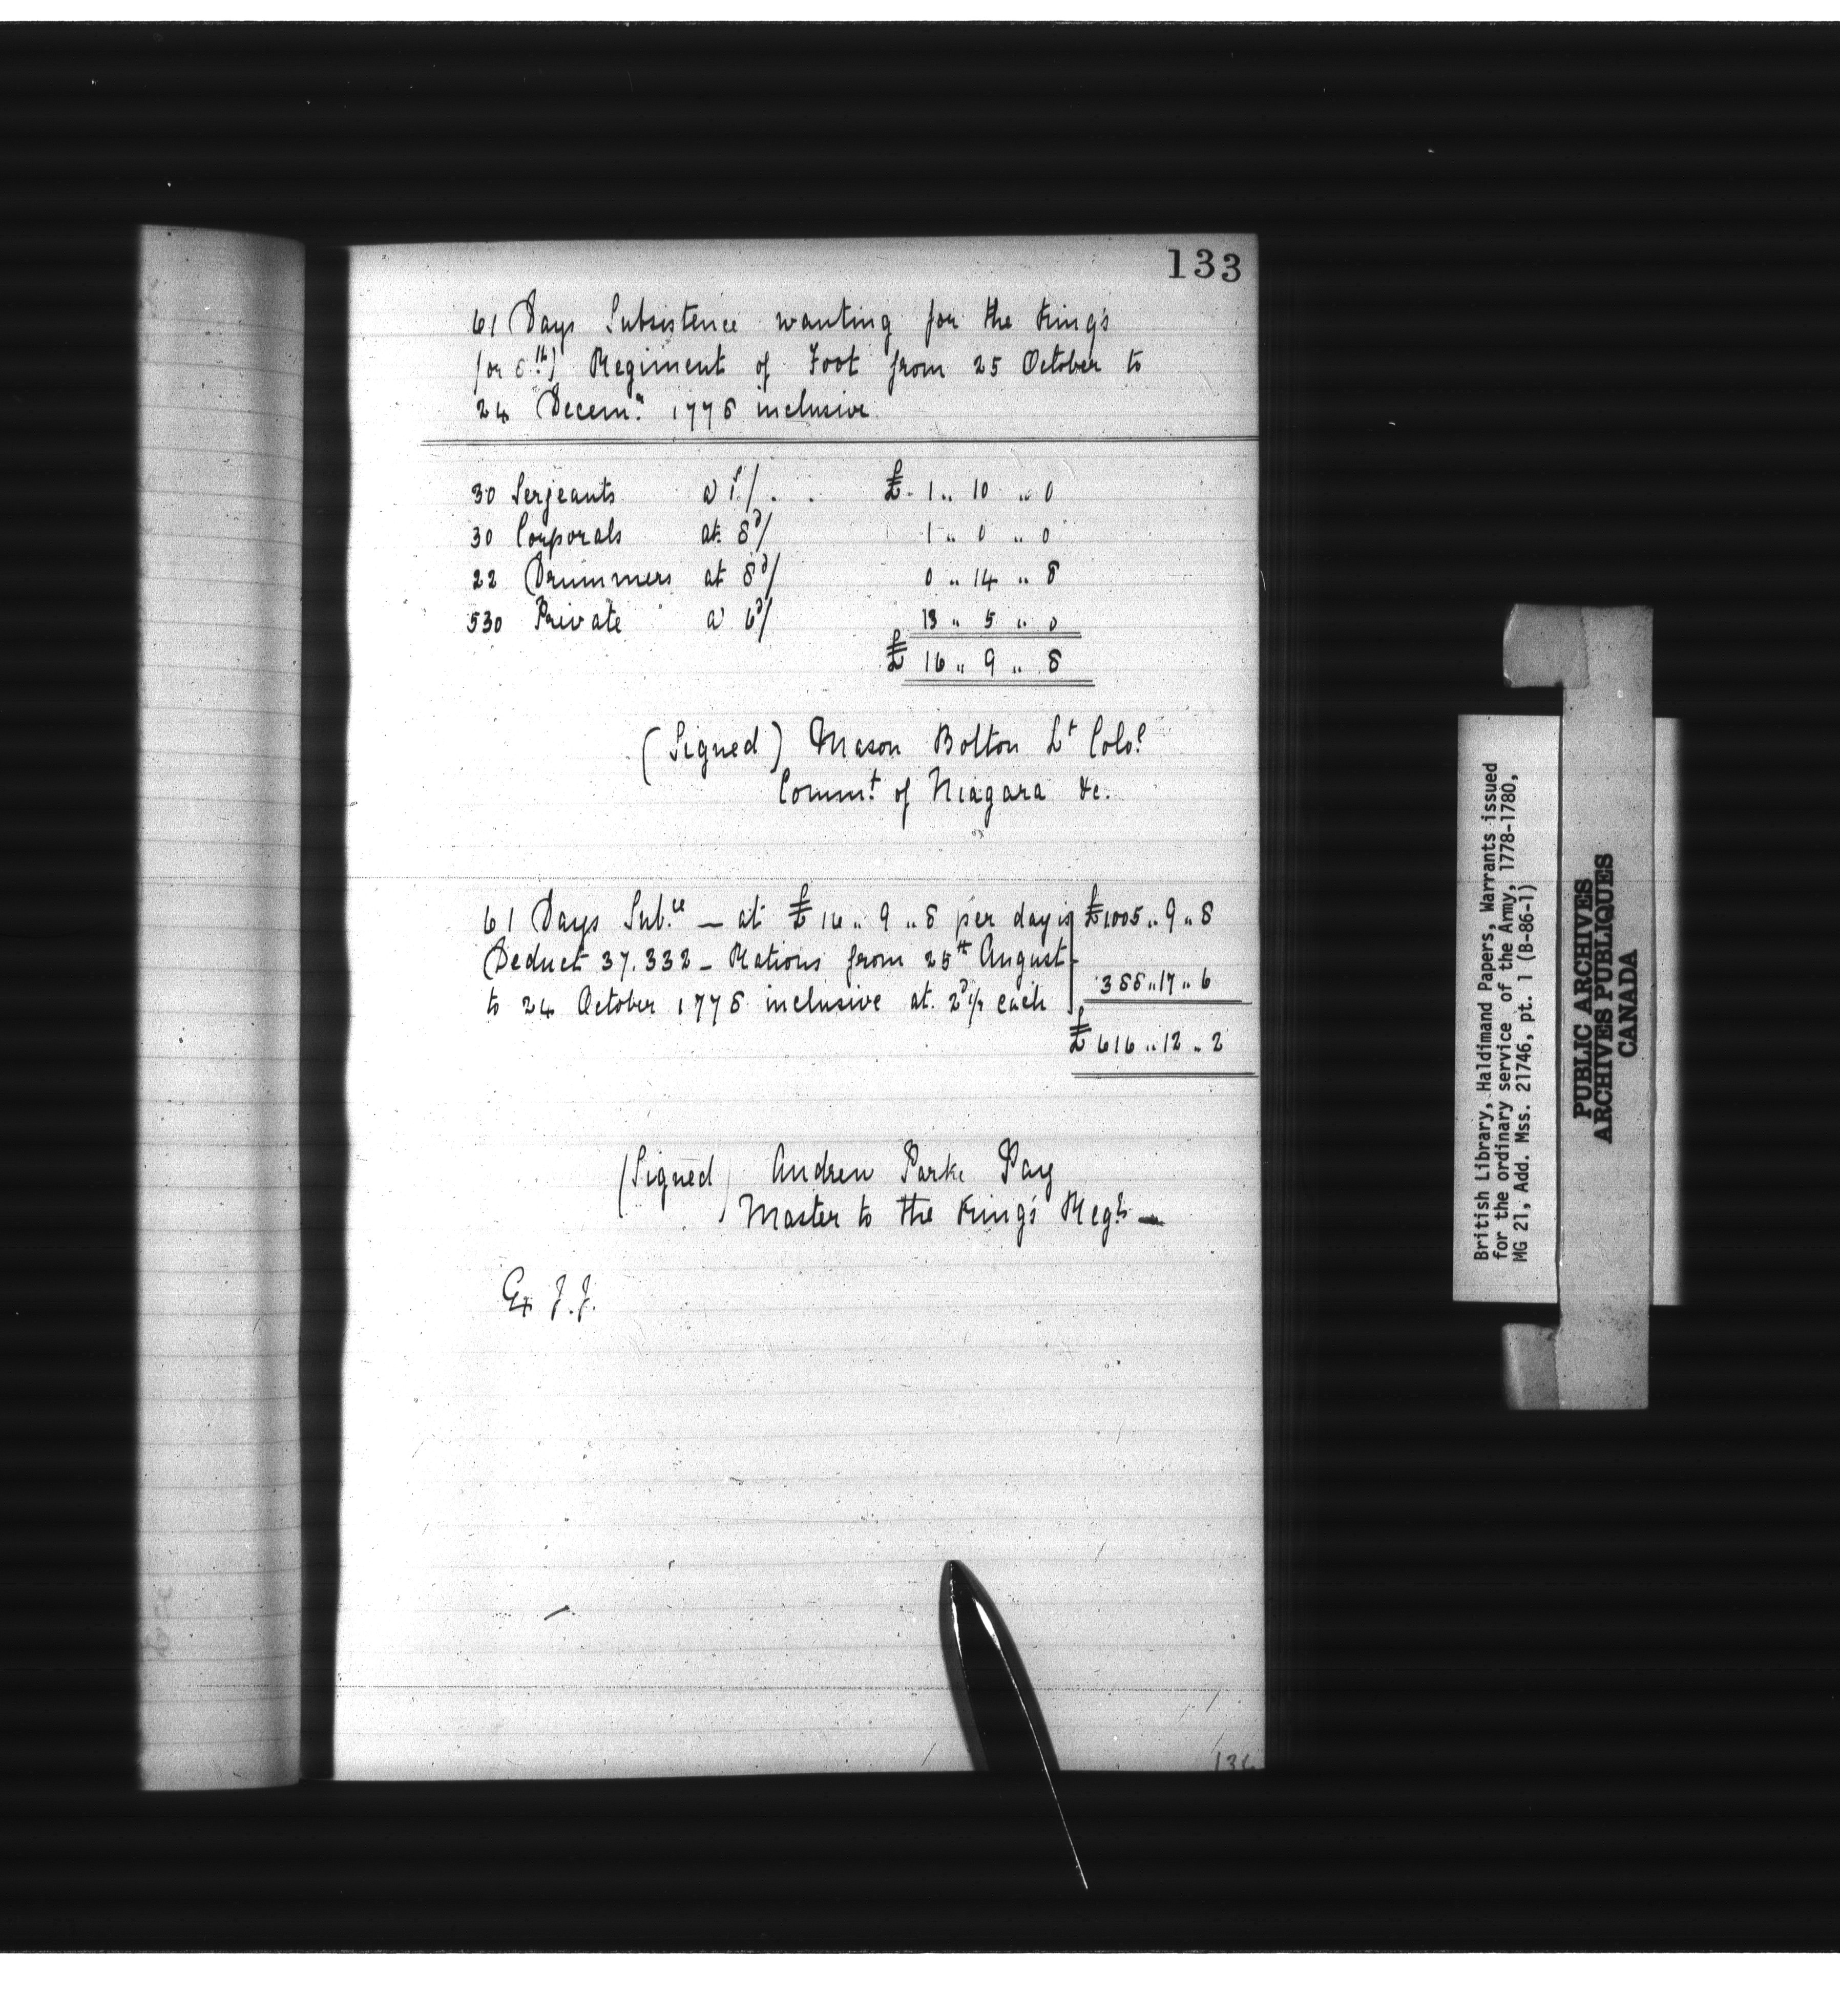 133
61 Days Subsistence wanting for the King's
(or 8th) Regiment of Foot from 25 October to
24 Decemr. 1778 inclusive
30 Serjeants a 1s/. . £. 1 „ 10 „ 0
30 Corporals at 8d/ 1 „ 0 „ 0
22 Drummers at 8d/ 0 „ 14 „ 8
530 Private a 6d/ 13 „ 5 „ 0
£ 16 „ 9 „ 8
(Signed) Mason Bolton Lt Colol.
Commt. of Niagara &c.
61 Days Sub.ce — at £16 „ 9 „ 8 per day is £1005 „ 9 „ 8
Deduct 37.332 — Rations from 25th August
to 24 October 1778 inclusive at 2d 1/2 each 388 „ 17 „ 6
£ 616 „ 12 „ 2
(Signed) Andrew Parke Pay
Master to the King's Regt. —
Ex J.J.
British Library, Haldimand Papers, Warrants issued
for the ordinary service of the Army, 1778-1780,
MG 21, Add. Mss. 21746, pt. 1 (B-86-1)
PUBLIC ARCHIVES
ARCHIVES PUBLIQUES
CANADA